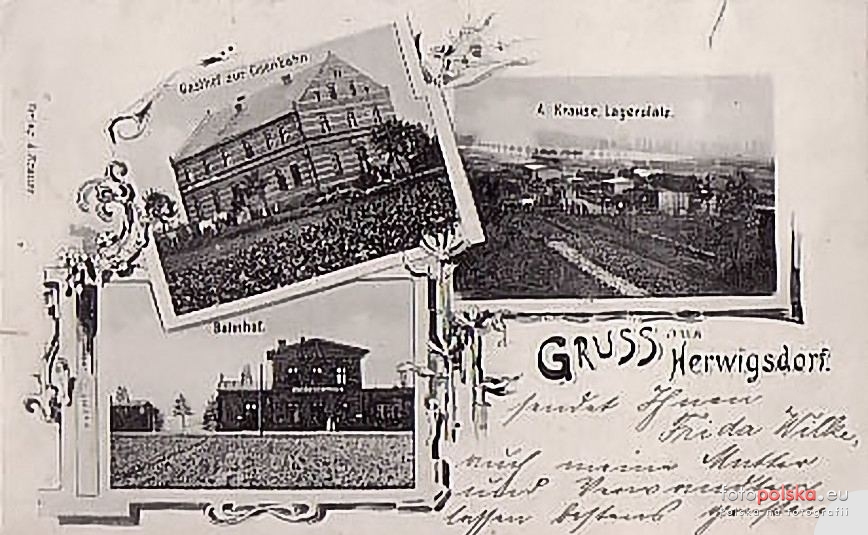 Gasthof zur Eisenbahn
A. Krause, Lagerplatz.
Verlag A. Krause
Bahnhof.
GRUSS aus
Herwigsdorf.
sendet Ihnen
Frida Wilke,
auch meine Mutter
und Verwandten
lassen bestens
fotopolska.eu
Polska na fotografii